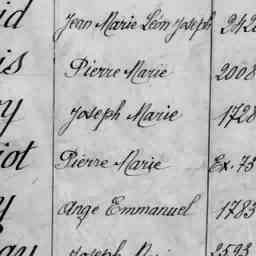 id Jean Marie Léon Joseph 242
is Pierre Marie 2008
y Joseph Marie 1728
iot Pierre Marie Ex. 75
y Ange Emmanuel 1783
ay Joseph 2593